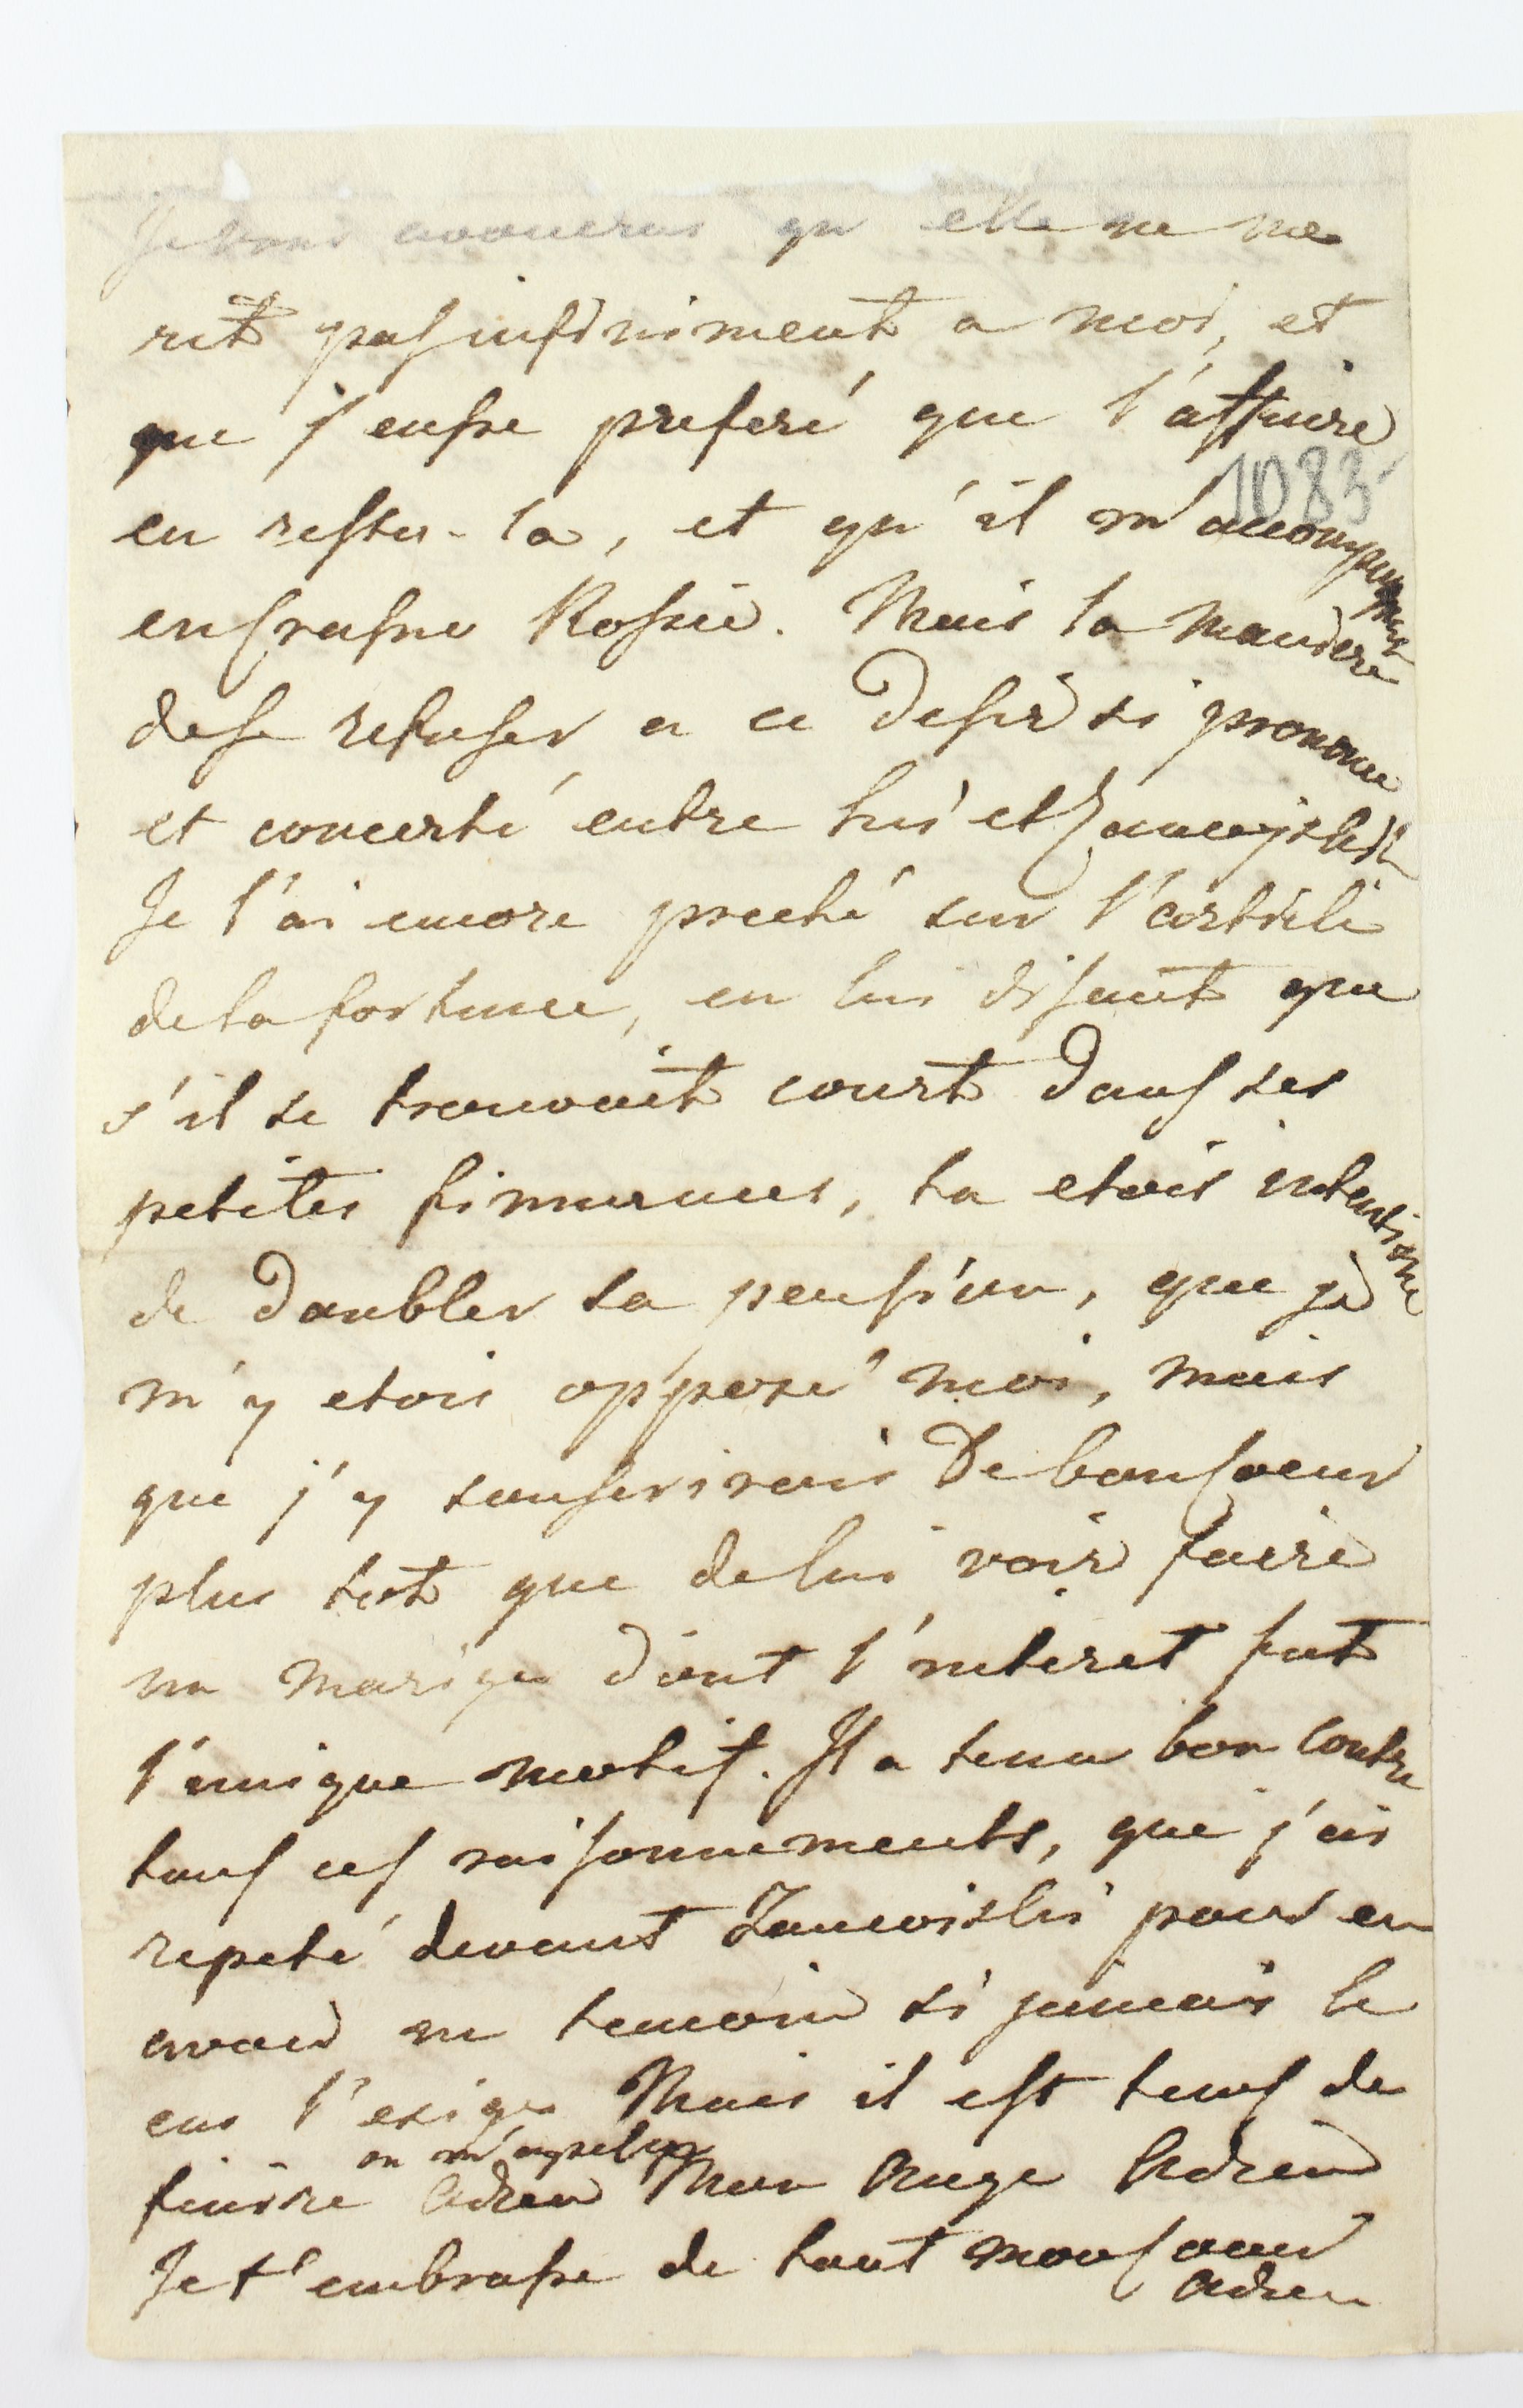 Je vous avouerai qu elle ne me
rit pas infiniment a moi, et
que j'eusse preferé que l'affaire
1083
en rester-la, et qu'il m'accompagnant
en Russie. Mais la maniere
de se refuser a ce desir si prononcé
et concerté entre lui et Zamoyski
Je l'ai encore preché sur l'article
de la fortune, en lui disant que
s'il se trouvait court dans ses
petites finances, tu etois intentionné
de doubler sa pension, que je
m'y etois opposé moi, mais
que j'y souscrirais de bon coeur
plus tot que de lui voir faire
un mariage dont l'interet fut
l'unique motif. Il a tenu bon contre
tous ces raisonnements, que j'ai
repeté devant Zamoiski pour en
avoir un temoin si jamais le
cas l'exige Mais il est tems de
on m'appelle
finire Adieu Mon Ange Adieu
Je t'embrasse de tout mon coeur
Adieu